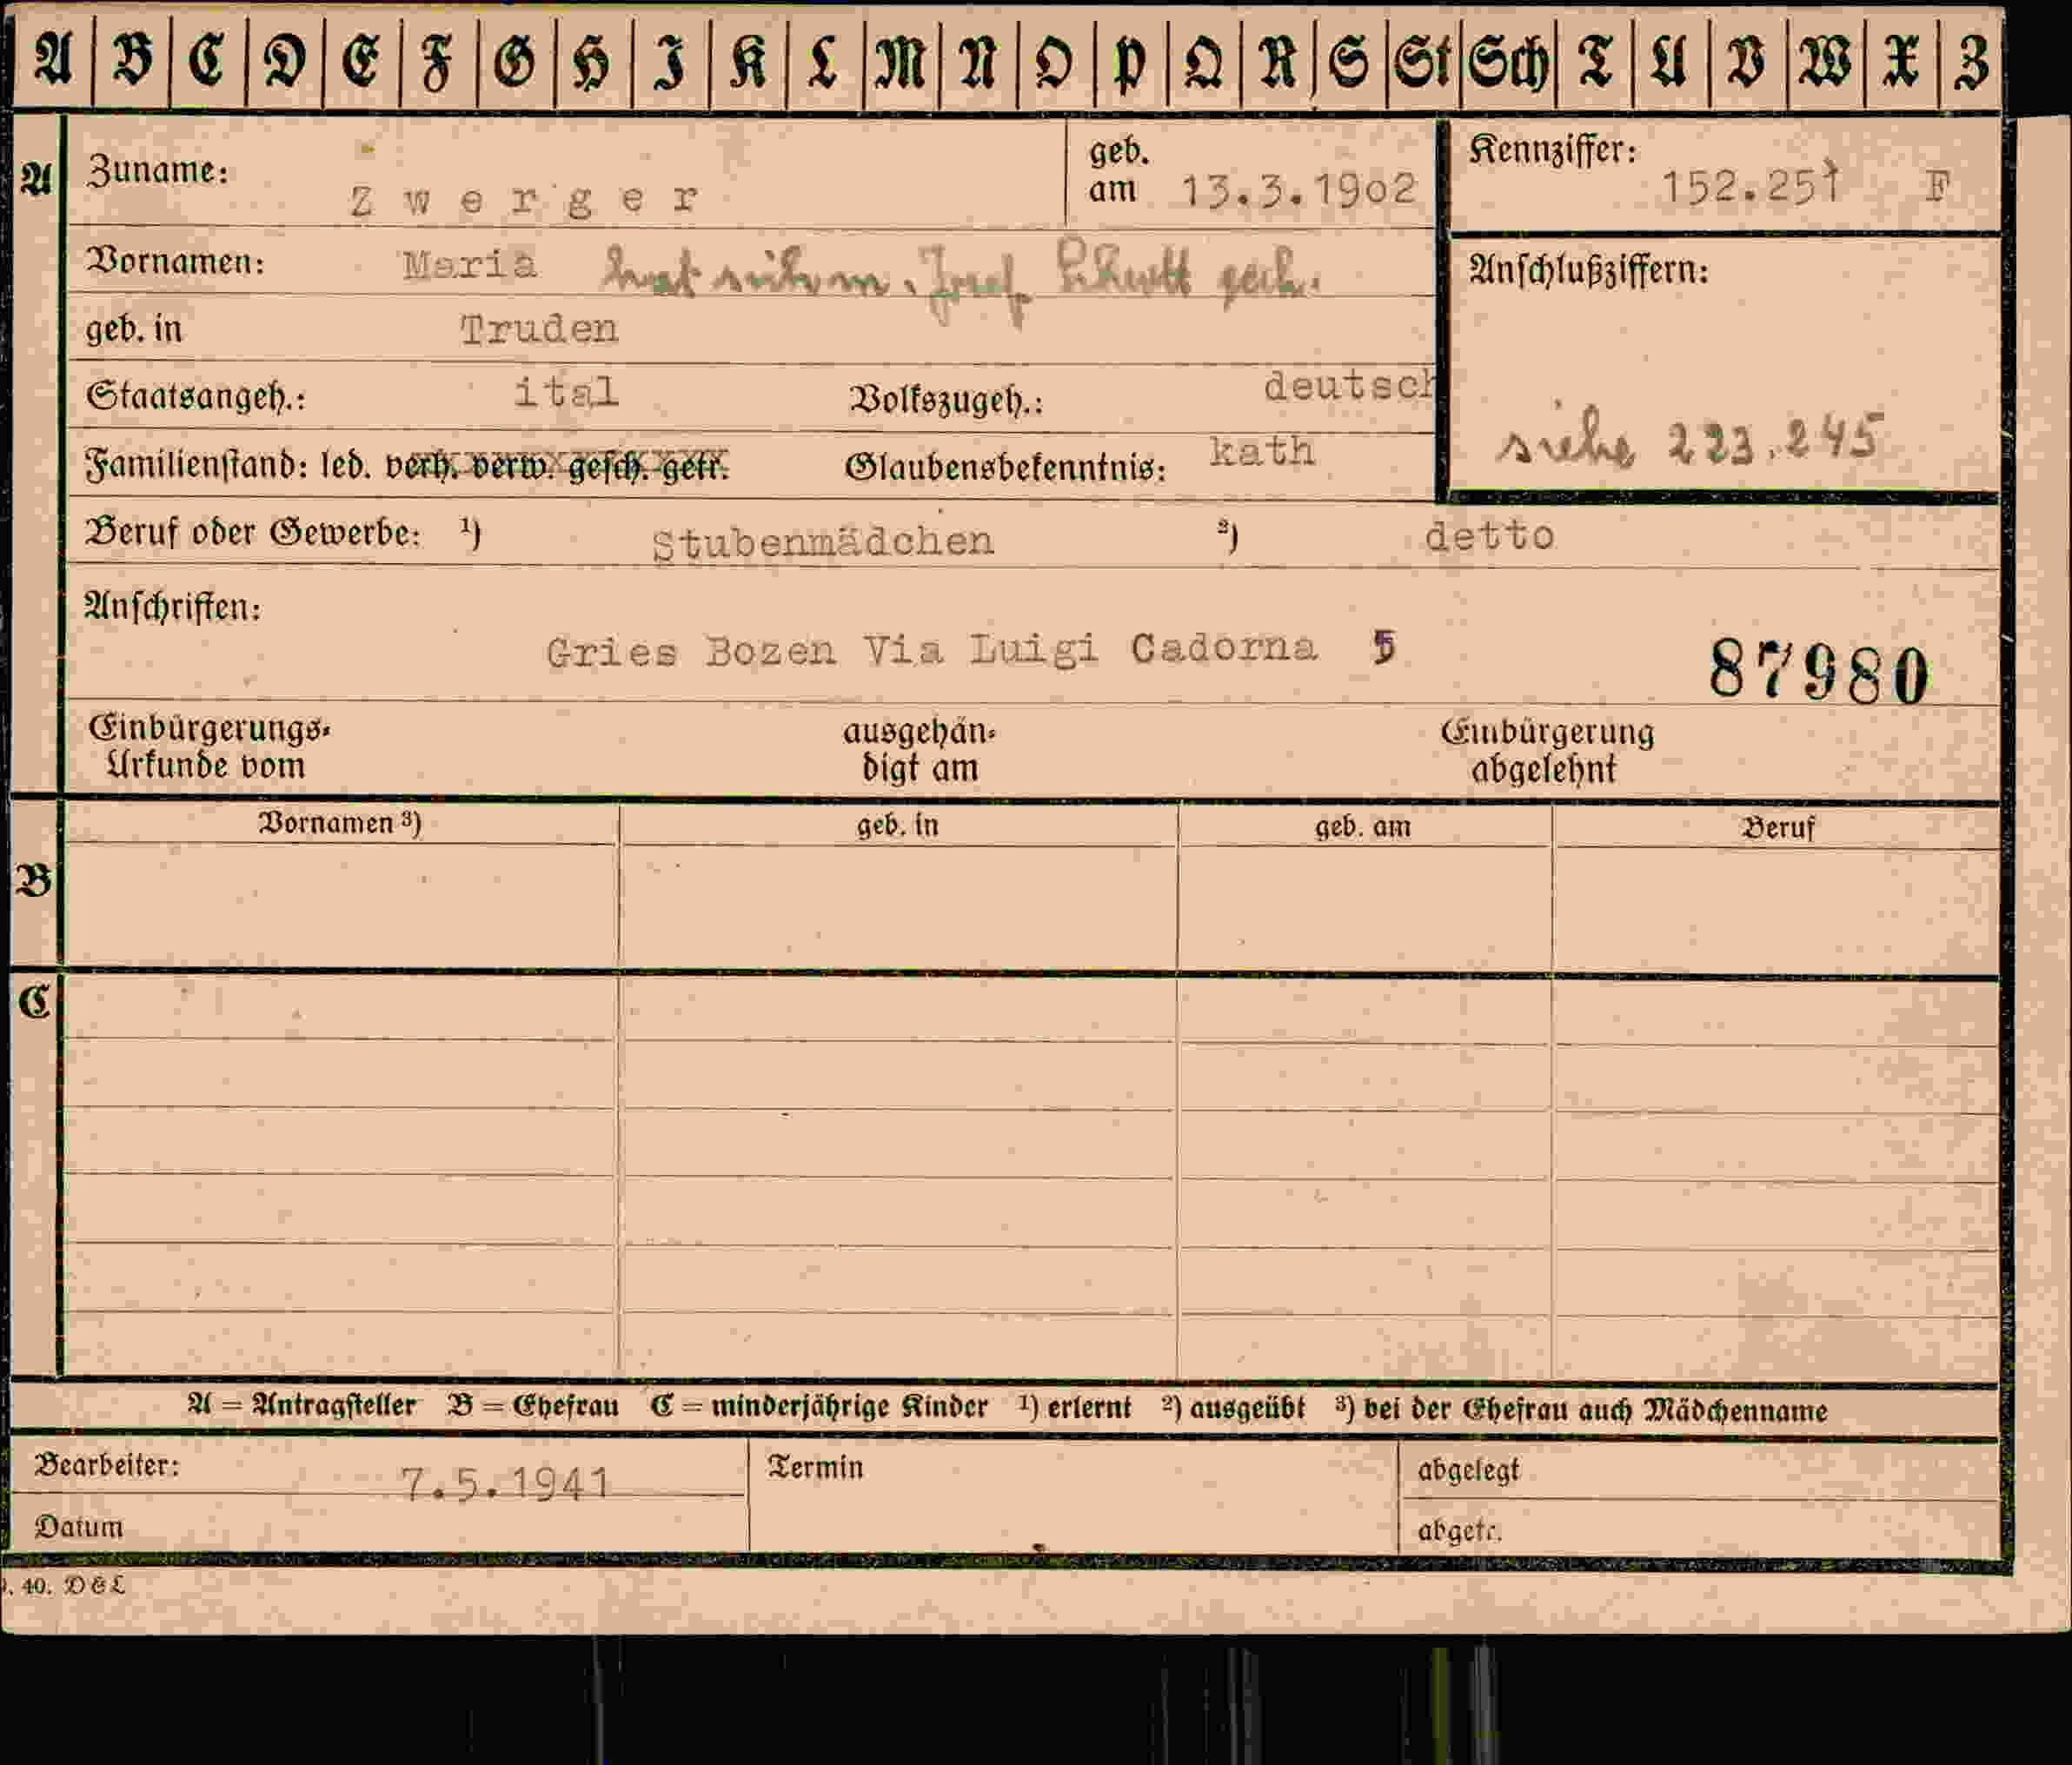 A B C D E F G H I K L M N O P Q R S St Sch T U V W X Z
A
Zuname: Zwerger
geb. am 13.3.1902
Kennziffer: 152.251 F
Vornamen: Maria hat sich m. Josef gech.
Anschlußziffern:
geb. in Truden
Staatsangeh.: ital Volkszugeh.: deutsch
siehe 223.245
Familienstand: led. verh. verw. gesch. getr. Glaubensbekenntnis: kath
Beruf oder Gewerbe: ¹) Stubenmädchen ²) detto
Anschriften:
Gries Bozen Via Luigi Cadorna 5
87980
Einbürgerungs-
Urkunde vom
ausgehän-
digt am
Einbürgerung
abgelehnt
B
Vornamen ³) geb. in geb. am Beruf
C
A = Antragsteller B = Ehefrau C = minderjährige Kinder ¹) erlernt ²) ausgeübt ³) bei der Ehefrau auch Mädchenname
Bearbeiter: 7.5.1941
Termin
abgelegt
Datum
abgetr.
. 40. D & L